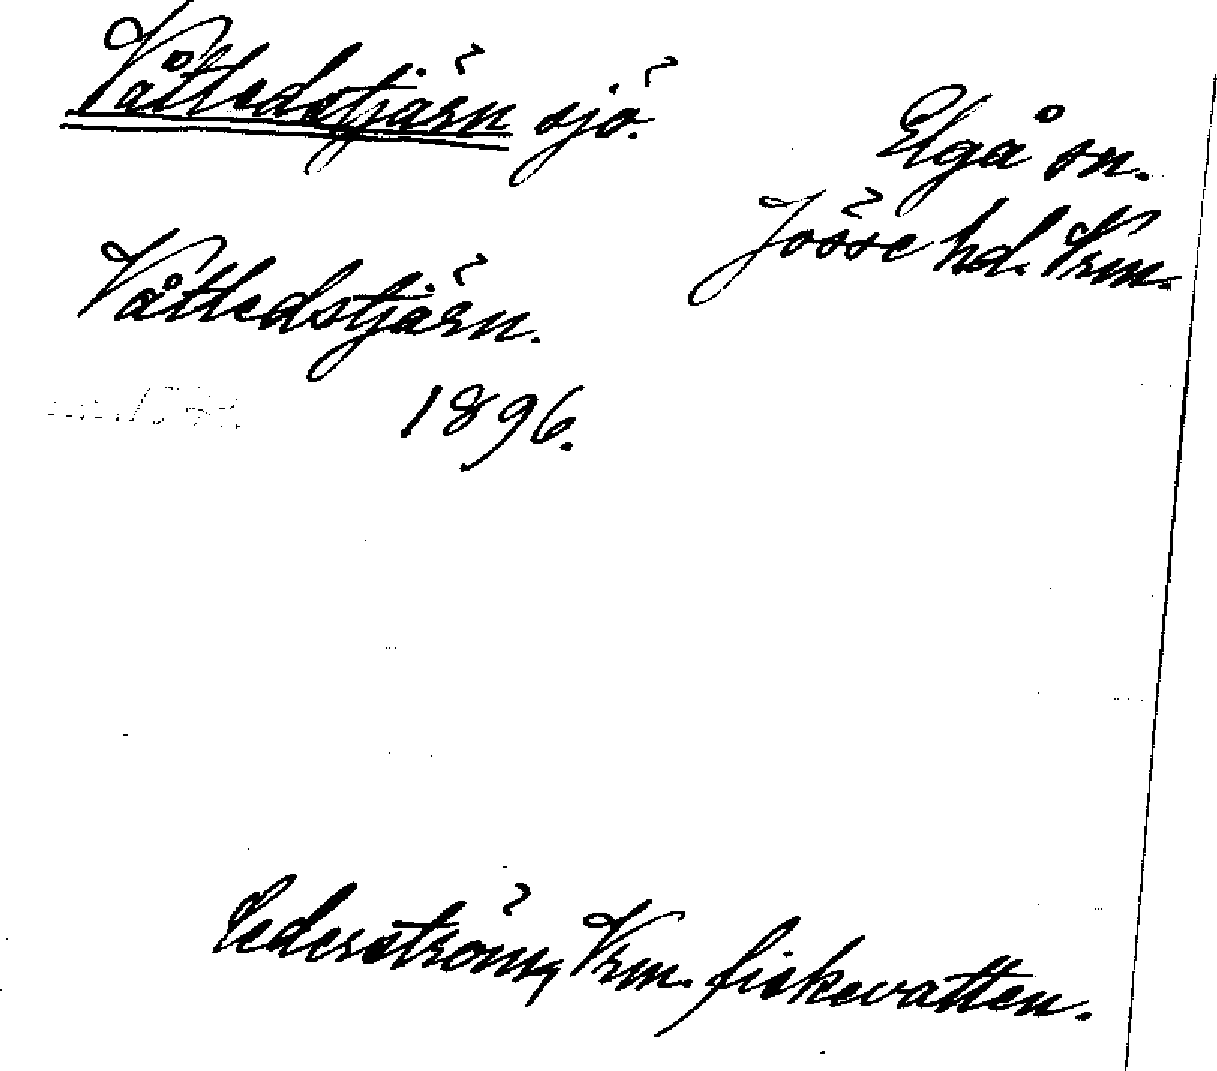 Våttledstjärn sjö.
Elgå sn.
Jösse hd. Vrm.
Våttledstjärn.
1896.
Cederström, Vrm. fiskevatten.